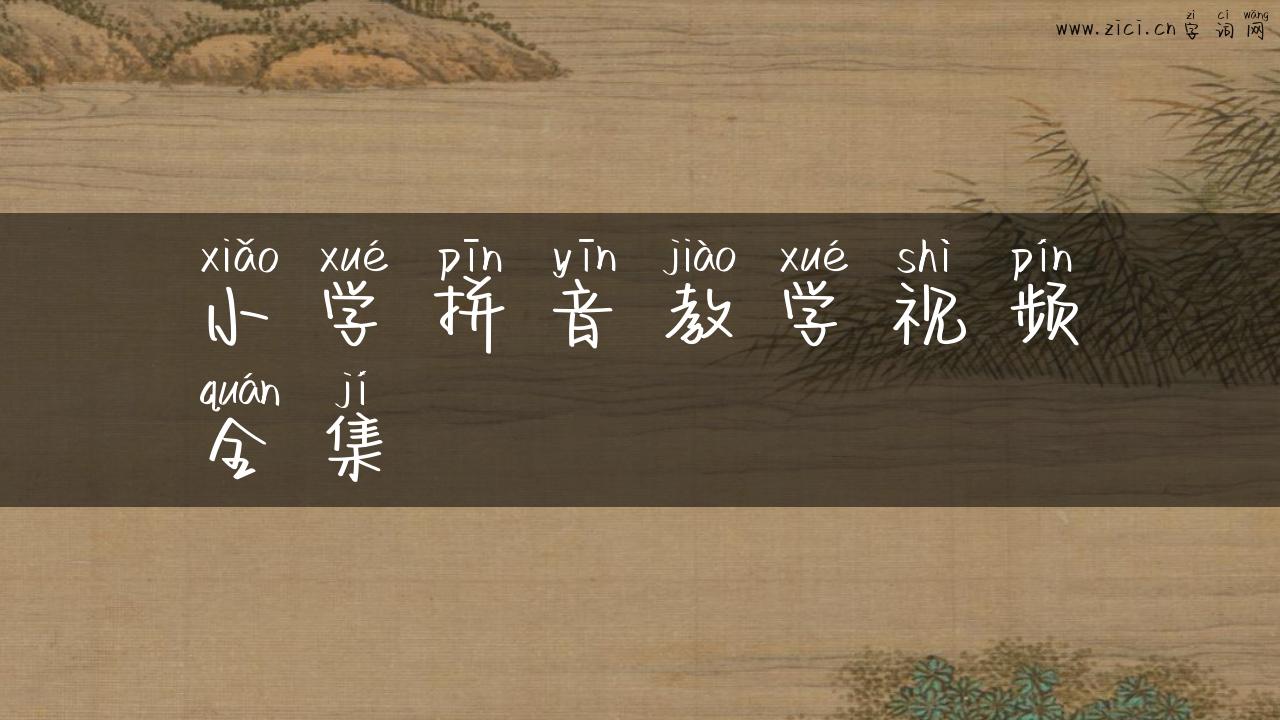 zì cí wǎng
www.zici.cn 字词网
xiǎo xué pīn yīn jiào xué shì pín
小学拼音教学视频
quán jí
全集